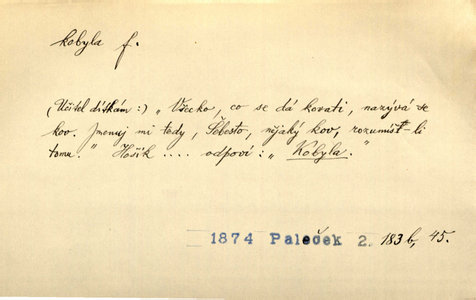 kobyla f.
(Učitel dítkám:) „Všecko, co se dá kovati, nazývá se
kov. Jmenuj mi tedy, Šebesto, nějaký kov, rozumíš-li
tomu." Hošík .... odpoví: „Kobyla."
1874 Paleček 2. 183b, 45.